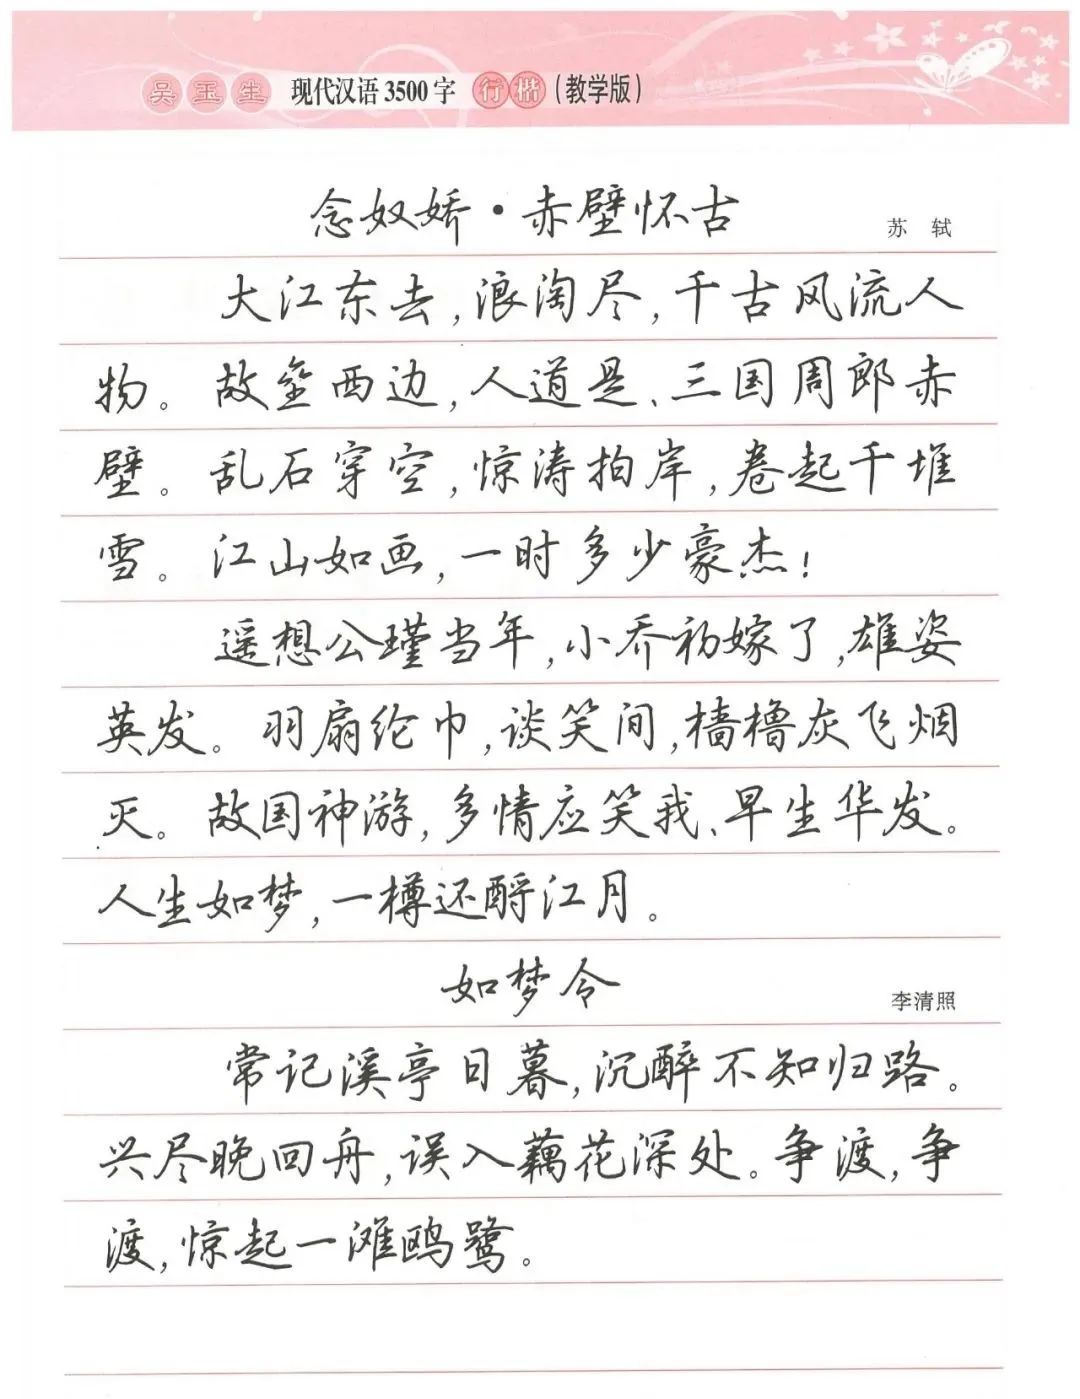 吴玉生 现代汉语3500字 行楷 (教学版)
念奴娇·赤壁怀古
苏 轼
大江东去,浪淘尽,千古风流人
物。故垒西边,人道是、三国周郎赤
壁。乱石穿空,惊涛拍岸,卷起千堆
雪。江山如画,一时多少豪杰!
遥想公瑾当年,小乔初嫁了,雄姿
英发。羽扇纶巾,谈笑间,樯橹灰飞烟
灭。故国神游,多情应笑我、早生华发。
人生如梦,一樽还酹江月。
如梦令
李清照
常记溪亭日暮,沉醉不知归路。
兴尽晚回舟,误入藕花深处。争渡,争
渡,惊起一滩鸥鹭。